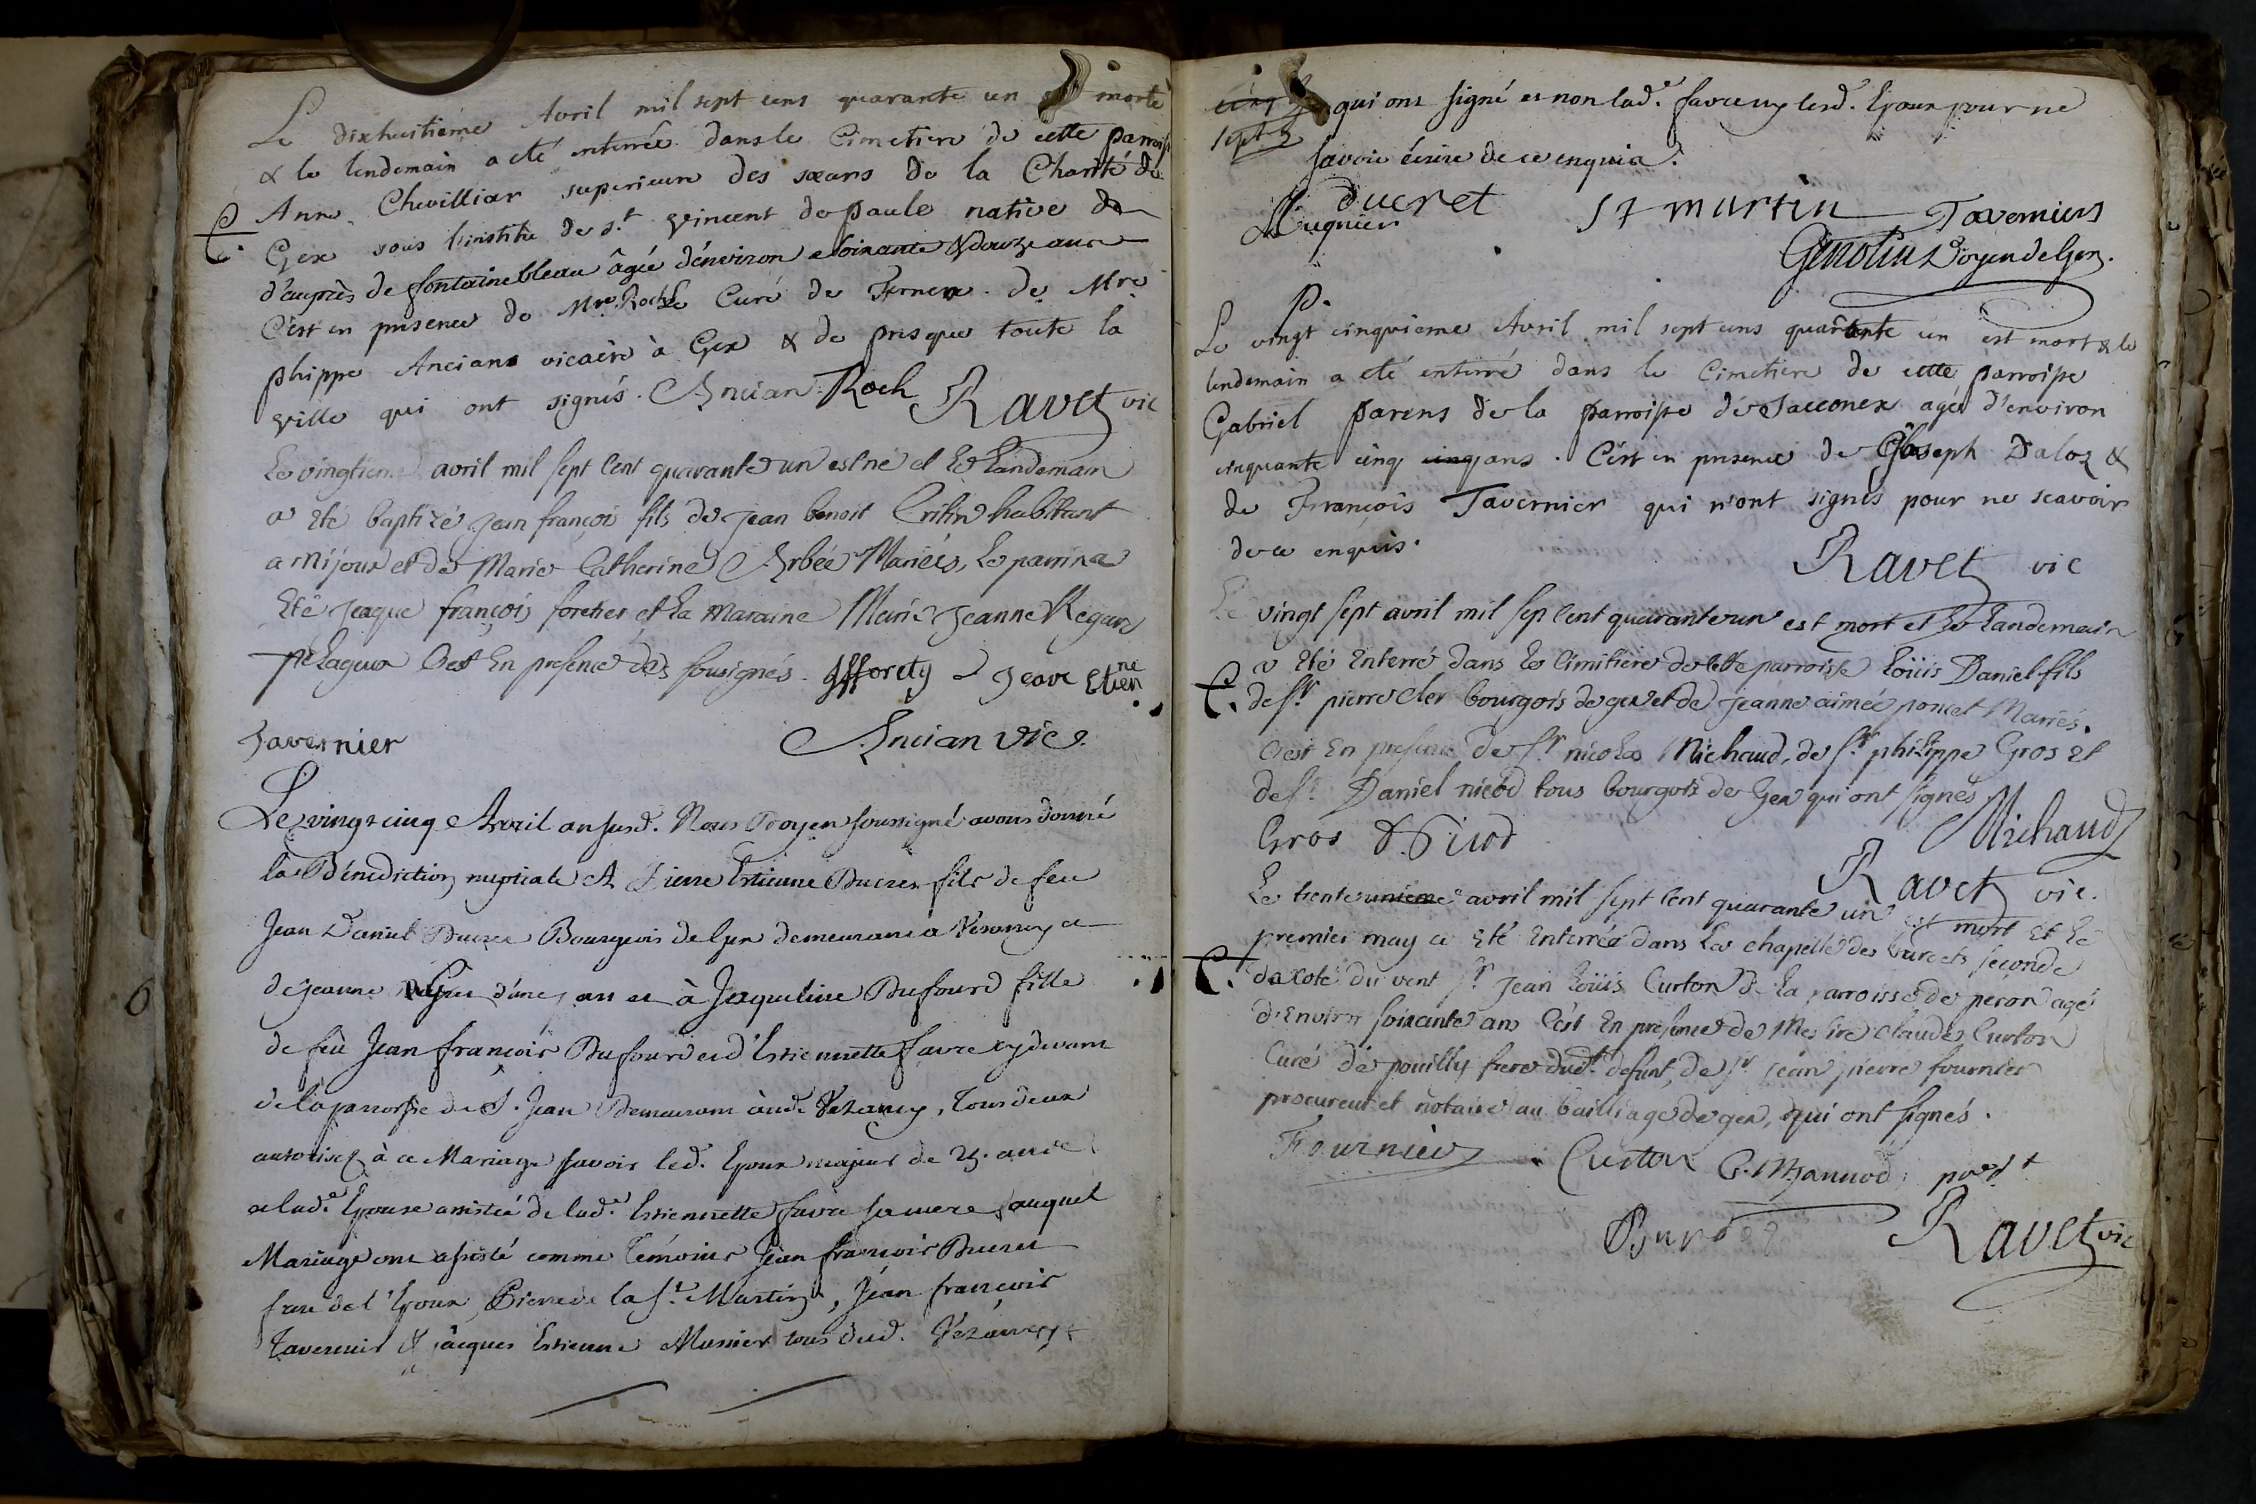 Le dixhuitiéme Avril mil sept cens quarante un morte
& le lendemain a été enterrée dans le Cimetiere de cette parroisse
Anne Chevilliar superieure des sœurs de la Charité de
Gex sous linstitu de st. vincent de paule native de
d'auprès de fontainebleau âgée d'environ soixante & douze ans
C'est en presence de Mre. Roch Curé de Fernex. de Mre
phippe Ancians vicaire à Gex & de presque toute la
ville qui ont signés. Ancian Roch Ravet vic
Le vingtieme avril mil sept Cent quarante un est né et Le Landemain
a été baptizé jean françois fils de jean benoit habittant
a mijoux et de Marie Catherine Arbée Mariés, Le parrin a
Eté jeaque françois foretier et La Maraine Marie Jeanne Regard
C'est En presence des sousignés. Jean Etienne
Tavernier Ancian vic.
Le vingt cinq Avril an susd. Nous Doyen soussigné avons donné
la Bénédiction nuptiale A Pierre Estienne Ducret fils de feu
Jean Daniel Ducret Bourgeois de Gex demeurant à Vesancy et
de Jeanne d'une part et à Jaqueline Dufourd fille
de feu Jean françois Dufourd et d'Estiennette favre cy devant
de la parroisse de S. Jean Demeurant aud. Vezancy, Tous deux
autorisez à ce Mariage savoir led. Epoux majeur de 25. ans
et lad.e Epouse assistée de lad.e Estiennette favre sa mere, auquel
Mariage ont assisté comme Témoins Jean françois Ducret
frere de l'Epoux, Pierre de la St. Martin, Jean françois
Tavernier & jacques Estienne Musnier tous dud. Vézancy
qui ont signé et non lad.e favre ny lesd. Epoux pour ne
sept
savoir écrire de ce enquis.
Ducret St martin Taverniers
Genolin Doyen de Gex.
p.
Le vingt cinquieme Avril mil sept cens quarante un est mort & le
lendemain a été enterré dans le Cimetiere de cette parroisse
Gabriel parens de la parroisse de Sacconex agé d'environ
cinquante cinq cinq ans. C'est en presence de Joseph Daloz &
de François Tavernier qui n'ont signés pour ne scavoir
de ce enquis.
Ravet vic
Le vingt sept avril mil sep Cent quarante un est mort et Le Landemain
a Eté Enterré dans Le Cimitière de Cette parroisse Loüis Daniel fils
de Sr. pierre Cler bourgois de gex et de jeanne aimée poncet Mariés.
C'est En presence de Sr. nicolas Michaud, de Sr. philippe Gros Et
de Sr. Daniel nicod tous bourgois de Gex qui ont signés
Gros D. Nicod Michaud
Ravet vic.
Le trente unieme avril mil sept Cent quarante un est mort Et Le
premier may a Eté Enterrée dans La chapelle des seconde
da coté du vent Sr. Jean Loüis Curton de La parroisse de peron agé
d'Environ soixante ans C'est En presence de Messire Claude Curton
Curé de pouilly frere dudt. defunt, de Sr jean pierre fournier
procureur et notaire au bailliage de gex, qui ont signés.
Fournier Curton
Ravet vic